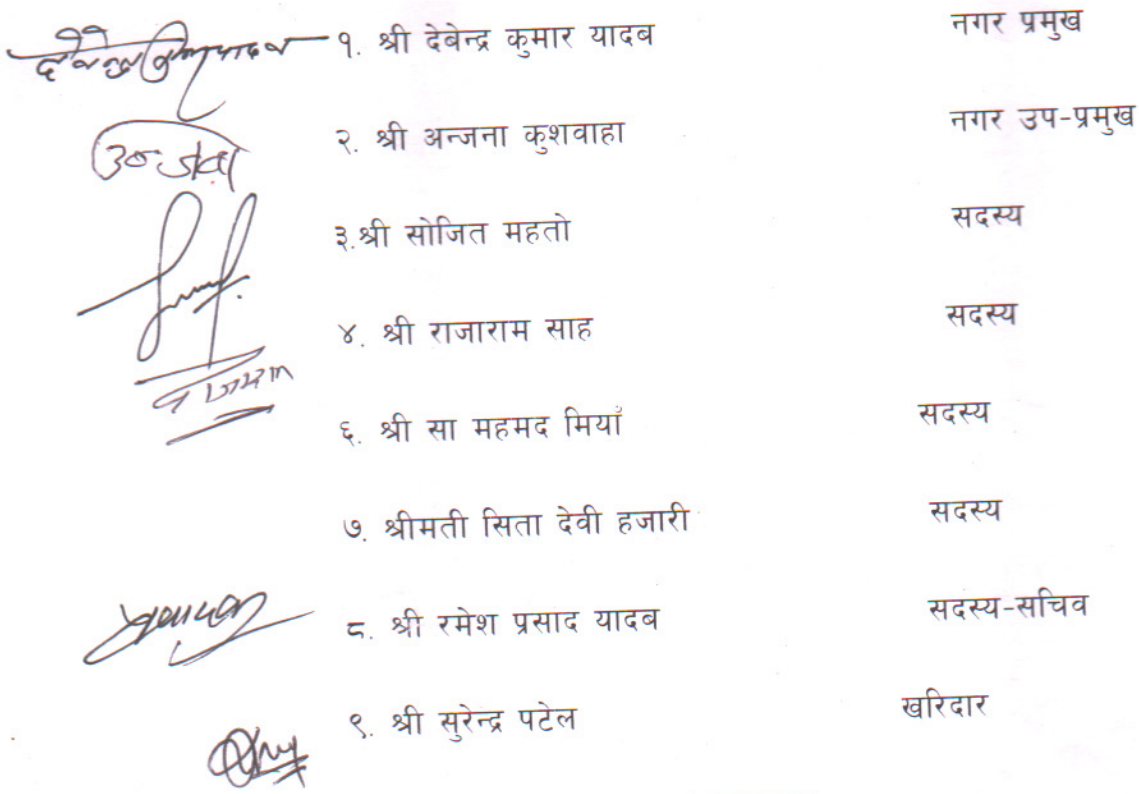 देवेन्द्र कुमार यादव १. श्री देबेन्द्र कुमार यादब नगर प्रमुख
२. श्री अन्जना कुशवाहा नगर उप-प्रमुख
३.श्री सोजित महतो सदस्य
४. श्री राजाराम साह सदस्य
६. श्री सा महमद मियाँ सदस्य
७. श्रीमती सिता देवी हजारी सदस्य
८. श्री रमेश प्रसाद यादब सदस्य-सचिव
९. श्री सुरेन्द्र पटेल खरिदार